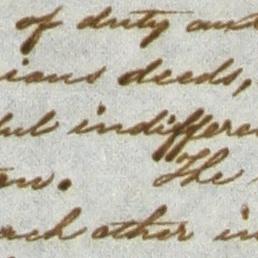 of duty and
ions deeds,
ful indiffere
on. The
each other in